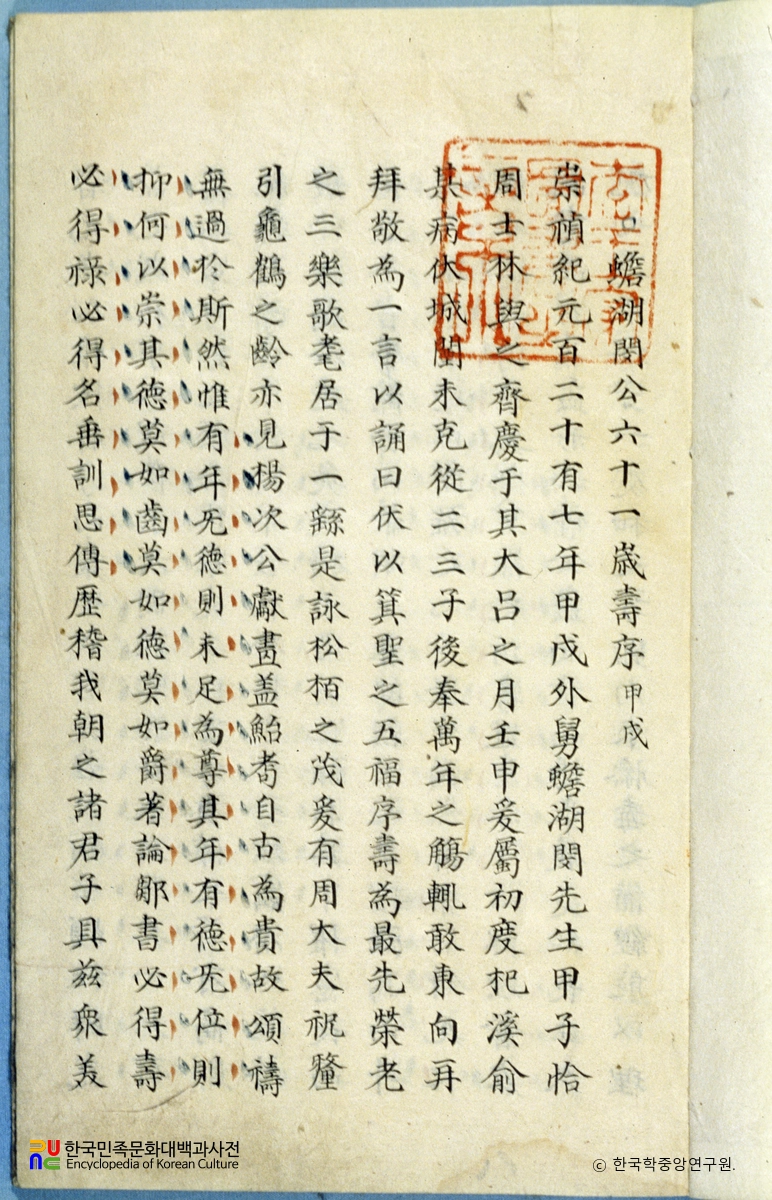 蟾湖閔公六十一歲壽序 甲戌
崇禎紀元百二十有七年甲戌外舅蟾湖閔先生甲子恰
周士林與之齊慶于其大呂之月壬申爰屬初度杞溪俞
某病伏城闉未克從二三子後奉萬年之觴輒敢東向再
拜敬為一言以誦曰伏以箕聖之五福序壽為最先榮老
之三樂歌耄居于一繇是詠松栢之茂爰有周大夫祝釐
引龜鶴之齡亦見楊次公獻畫盖鮐耇自古為貴故頌禱
無過於斯然惟有年旡德則未足為尊其年有德旡位則
抑何以崇其德莫如齒莫如德莫如爵著論鄒書必得壽
必得祿必得名垂訓思傳歷稽我朝之諸君子具茲衆美
한국민족문화대백과사전
Encyclopedia of Korean Culture
© 한국학중앙연구원.